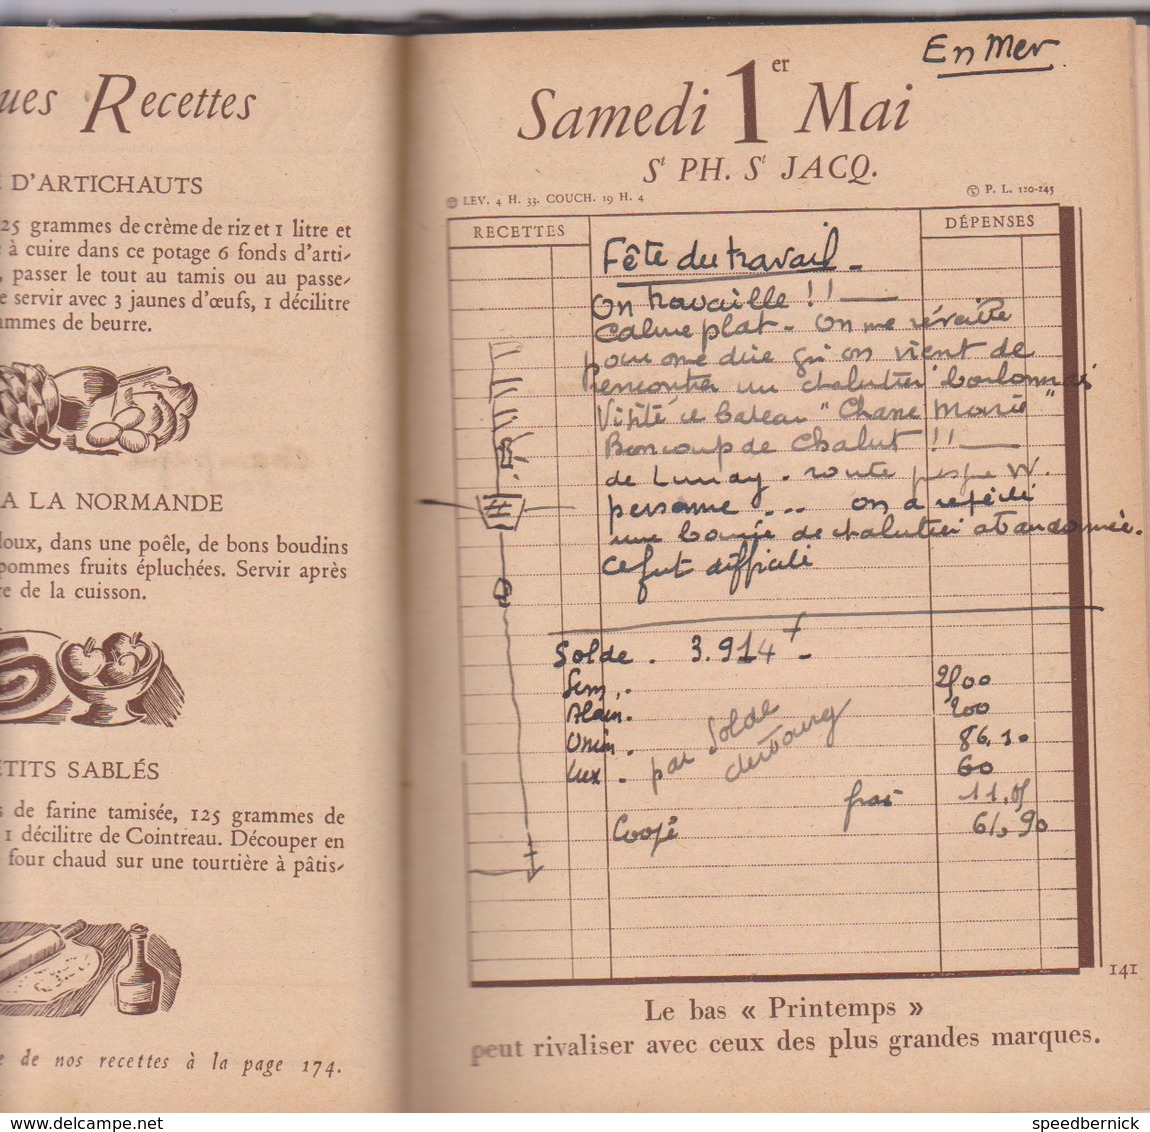 ues Recettes
D'ARTICHAUTS
25 grammes de crème de riz et 1 litre et
à cuire dans ce potage 6 fonds d'arti-
, passer le tout au tamis ou au passe-
e servir avec 3 jaunes d'œufs, 1 décilitre
ammes de beurre.
A LA NORMANDE
doux, dans une poêle, de bons boudins
pommes fruits épluchées. Servir après
e de la cuisson.
ETITS SABLÉS
s de farine tamisée, 125 grammes de
1 décilitre de Cointreau. Découper en
four chaud sur une tourtière à pâtis-
e de nos recettes à la page 174.
En Mer
Samedi 1er Mai
St PH. St JACQ.
LEV. 4 H. 33. COUCH. 19 H. 4
P. L. 120-245
RECETTES
DÉPENSES
Fête du travail -
On travaille !! —
Calme plat - On me réveille
pour me dire qu'on vient de
rencontrer un chalutier boulonnais
Visité ce bateau " Marie "
de chalut !! —
de . route W.
personne ... on a
une de chalutier abandonnée.
Ce fut difficile
Solde . 3.914 -
200
Alain. 200
86.10
Lux . 60
par solde
frais 11.05
Coopé 61,90
141
Le bas « Printemps »
peut rivaliser avec ceux des plus grandes marques.
www.delcampe.net
speedbernick